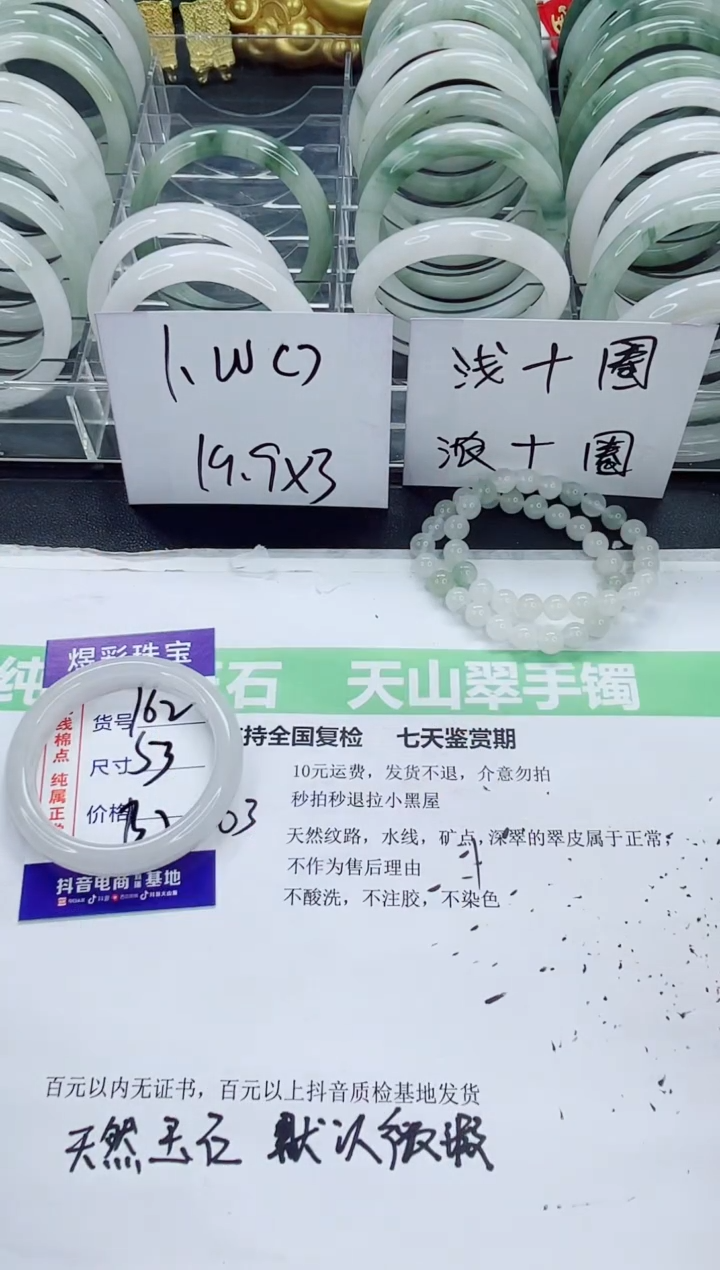 19.9X3
浅十圈
浓十圈
煜彩珠宝
石 天山翠手镯
持全国复检 七天鉴赏期
货号 162
尺寸 53
价格
线棉点 纯属正
10元运费，发货不退，介意勿拍
秒拍秒退拉小黑屋
天然纹路，水线，矿点，深翠的翠皮属于正常，
不作为售后理由
不酸洗，不注胶，不染色
抖音电商 基地
百元以内无证书，百元以上抖音质检基地发货
天然玉石 默认微瑕